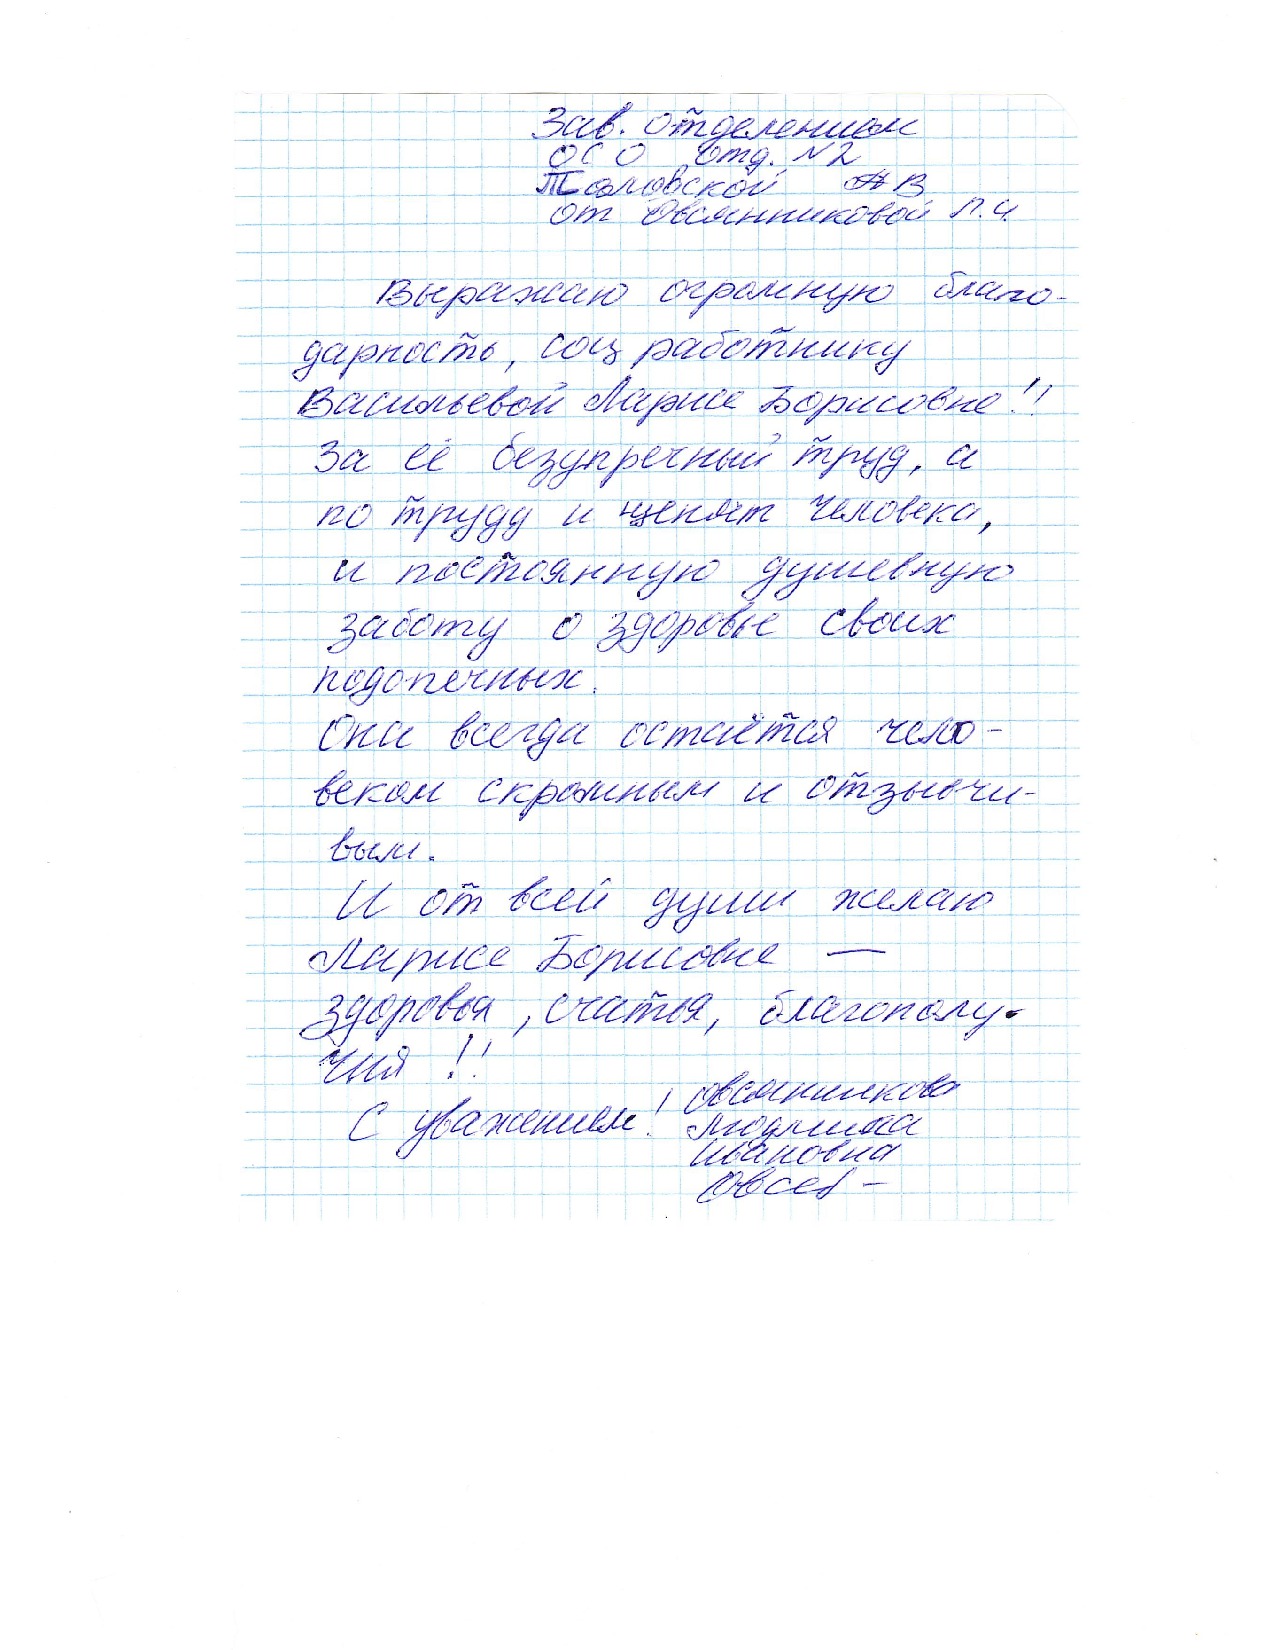 Зав. отделением
ОСО отд. №2
В
от Овсянниковой Л.И.
Выражаю огромную благо-
дарность, соц работнику
Васильевой Ларисе Борисовне!!
За её безупречный труд, а
по труду и ценят человека,
и постоянную душевную
заботу о здоровье своих
подопечных.
Она всегда остаётся чело-
веком скромным и отзывчи-
вым.
И от всей души желаю
Ларисе Борисовне —
здоровья, счастья, благополу-
чия!!
С уважением! Овсянникова
Людмила
Ивановна